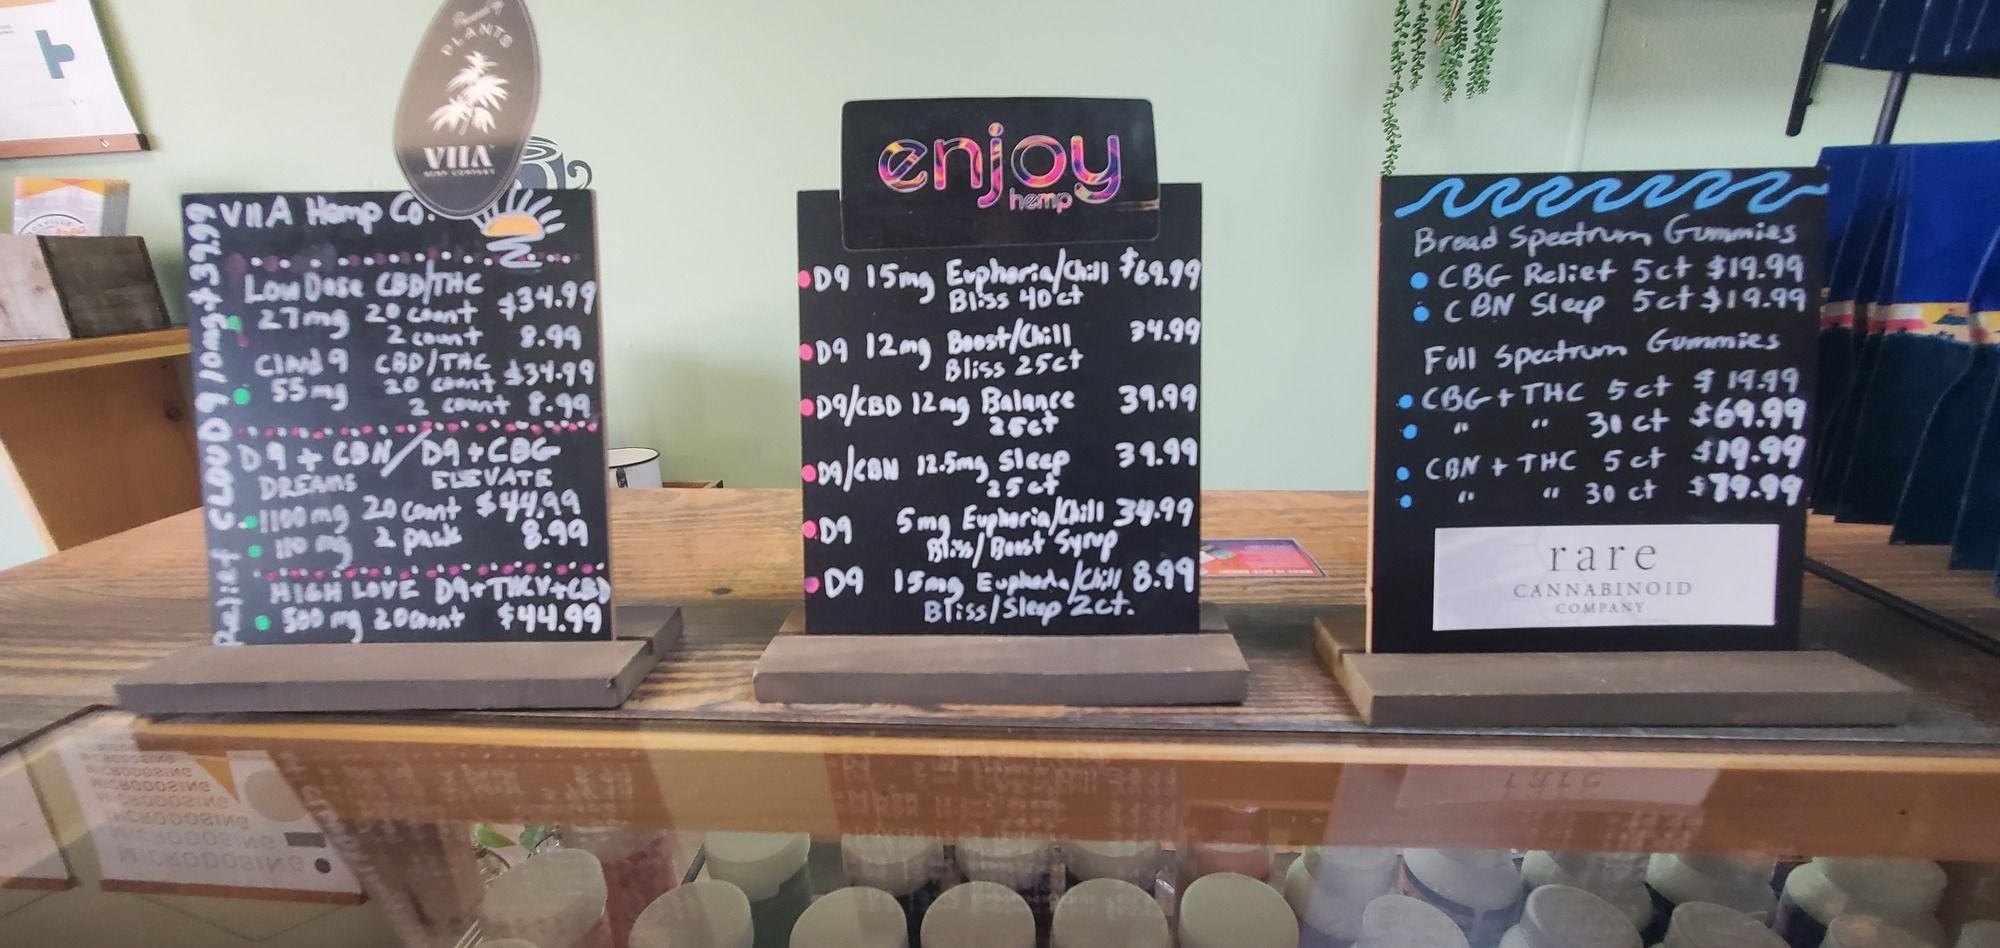 PLANTS
VIIA
HEMP COMPANY
VIIA Hemp Co.
Relief CLOUD 9 10mg $39.99
Low Dose CBD/THC
27mg 20 count $34.99
2 count 8.99
Cloud 9 CBD/THC
55mg 20 count $34.99
2 count 8.99
D9 + CBN/D9+CBG
DREAMS ELEVATE
1100mg 20 count $44.99
110 mg 2 pack 8.99
HIGH LOVE D9+THCV+CBD
500 mg 20 count $44.99
enjoy
hemp
D9 15mg Euphoria/Chill $69.99
Bliss 40ct
D9 12mg Boost/Chill 34.99
Bliss 25ct
D9/CBD 12mg Balance 39.99
25ct
D9/CBN 12.5mg Sleep 39.99
25ct
D9 5mg Euphoria/Chill 34.99
Bliss/Boost Syrup
D9 15mg Euphoria/Chill 8.99
Bliss/Sleep 2ct.
Broad Spectrum Gummies
CBG Relief 5ct $19.99
CBN Sleep 5ct $19.99
Full Spectrum Gummies
CBG+THC 5ct $19.99
" " 30ct $69.99
CBN+THC 5ct $19.99
" " 30ct $79.99
rare
CANNABINOID
COMPANY
MICRODOSING
MICRODOSING
MICRODOSING
MICRODOSING
MICRODOSING